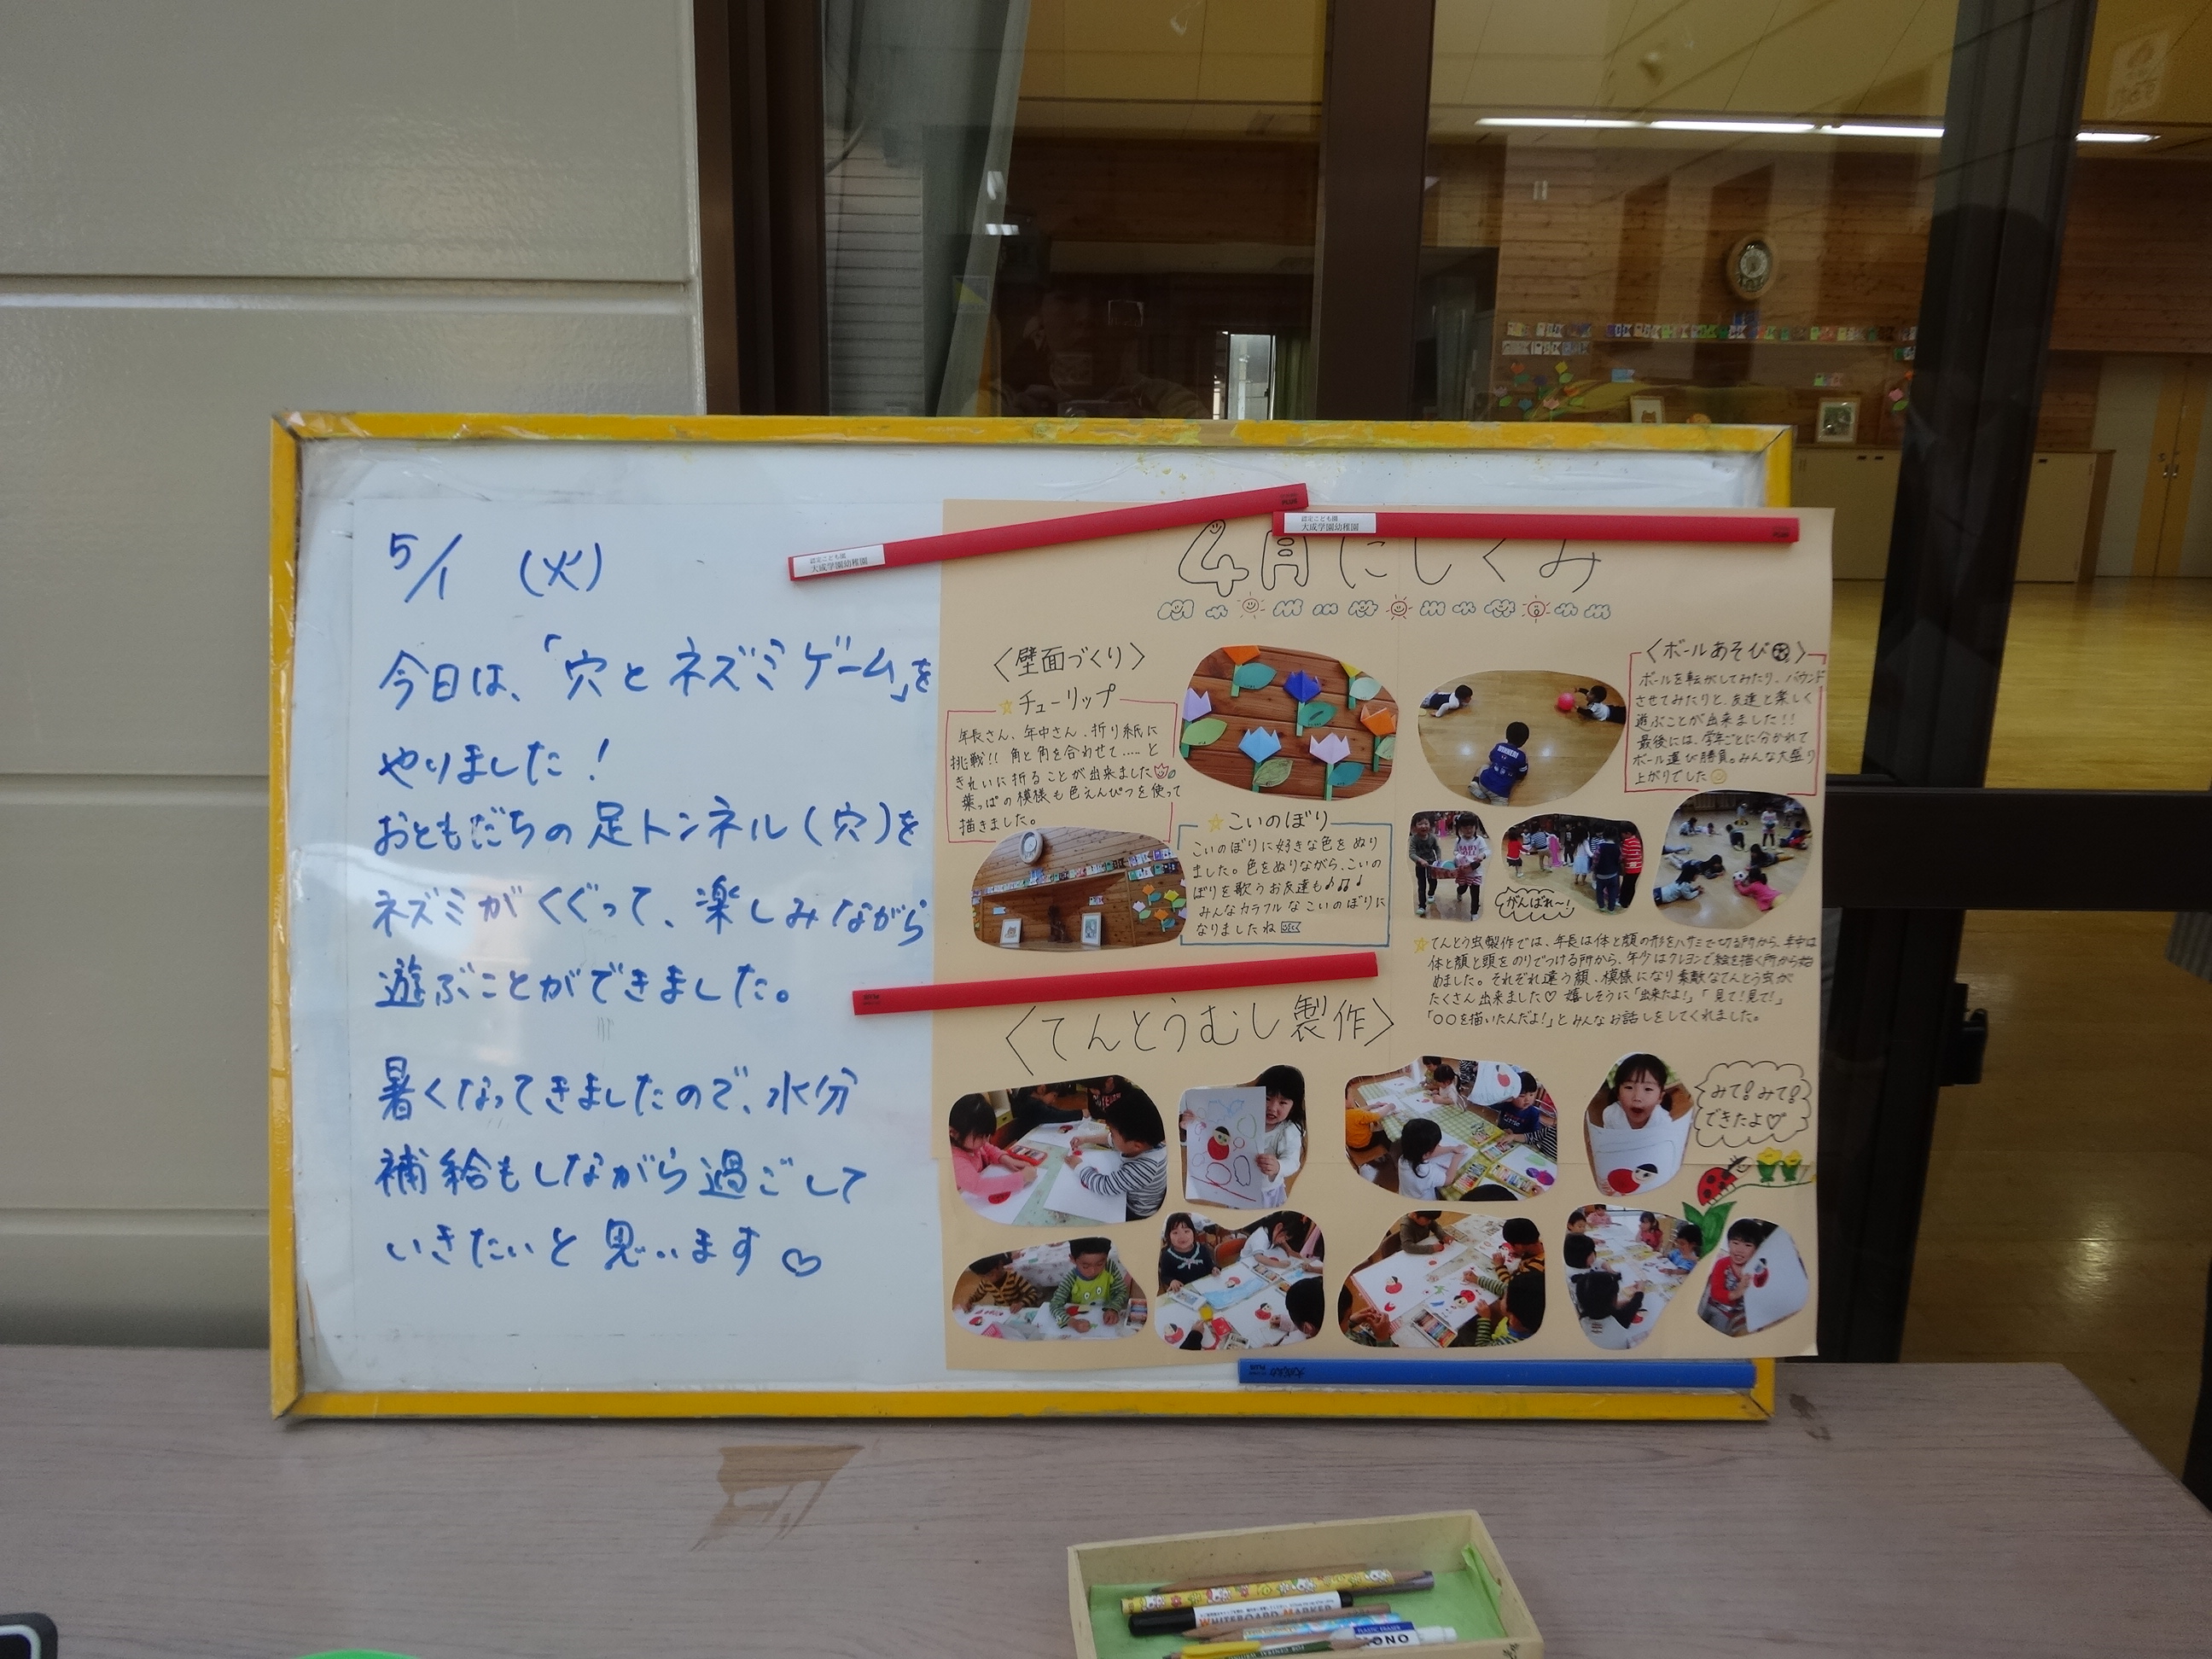 5/1 (火)
今日は、「穴とネズミゲーム」を
やりました!
おともだちの足トンネル(穴)を
ネズミがくぐって、楽しみながら
遊ぶことができました。
暑くなってきましたので、水分
補給もしながら過ごして
いきたいと思います♡
認定こども園
大成学園幼稚園
認定こども園
大成学園幼稚園
4月にじぐみ
〈壁面づくり〉
☆チューリップ
年長さん、年中さん、折り紙に
挑戦!! 角と角を合わせて……と
きれいに折ることが出来ました
葉っぱの模様も色えんぴつを使って
描きました。
☆こいのぼり
こいのぼりに好きな色をぬり
ました。色をぬりながら、こいの
ぼりを歌うお友達も♪♫♪
みんなカラフルなこいのぼりに
なりましたね
〈ボールあそび〉
ボールを転がしてみたり、バウンド
させてみたりと、友達と楽しく
遊ぶことが出来ました!!
最後には、学年ごとに分かれて
ボール運び勝負。みんな大盛り
上がりでした
がんばれ〜!
☆てんとう虫製作では、年長は体と顔の形をハサミで切る所から、年中は
体と顔と頭をのりでつける所から、年少はクレヨンで絵を描く所から始
めました。それぞれ違う顔、模様になり素敵なてんとう虫が
たくさん出来ました♡ 嬉しそうに「出来たよ!」「見て!見て!」
「○○を描いたんだよ!」とみんなお話しをしてくれました。
〈てんとうむし製作〉
みて!みて!
できたよ♡
PLUS
WHITEBOARD MARKER
PLASTIC ERASER
MONO